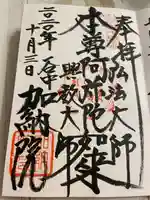 奉拝 弘法大師
本尊阿弥陀如来
興教大師
加納院
二〇二〇年
十月三日